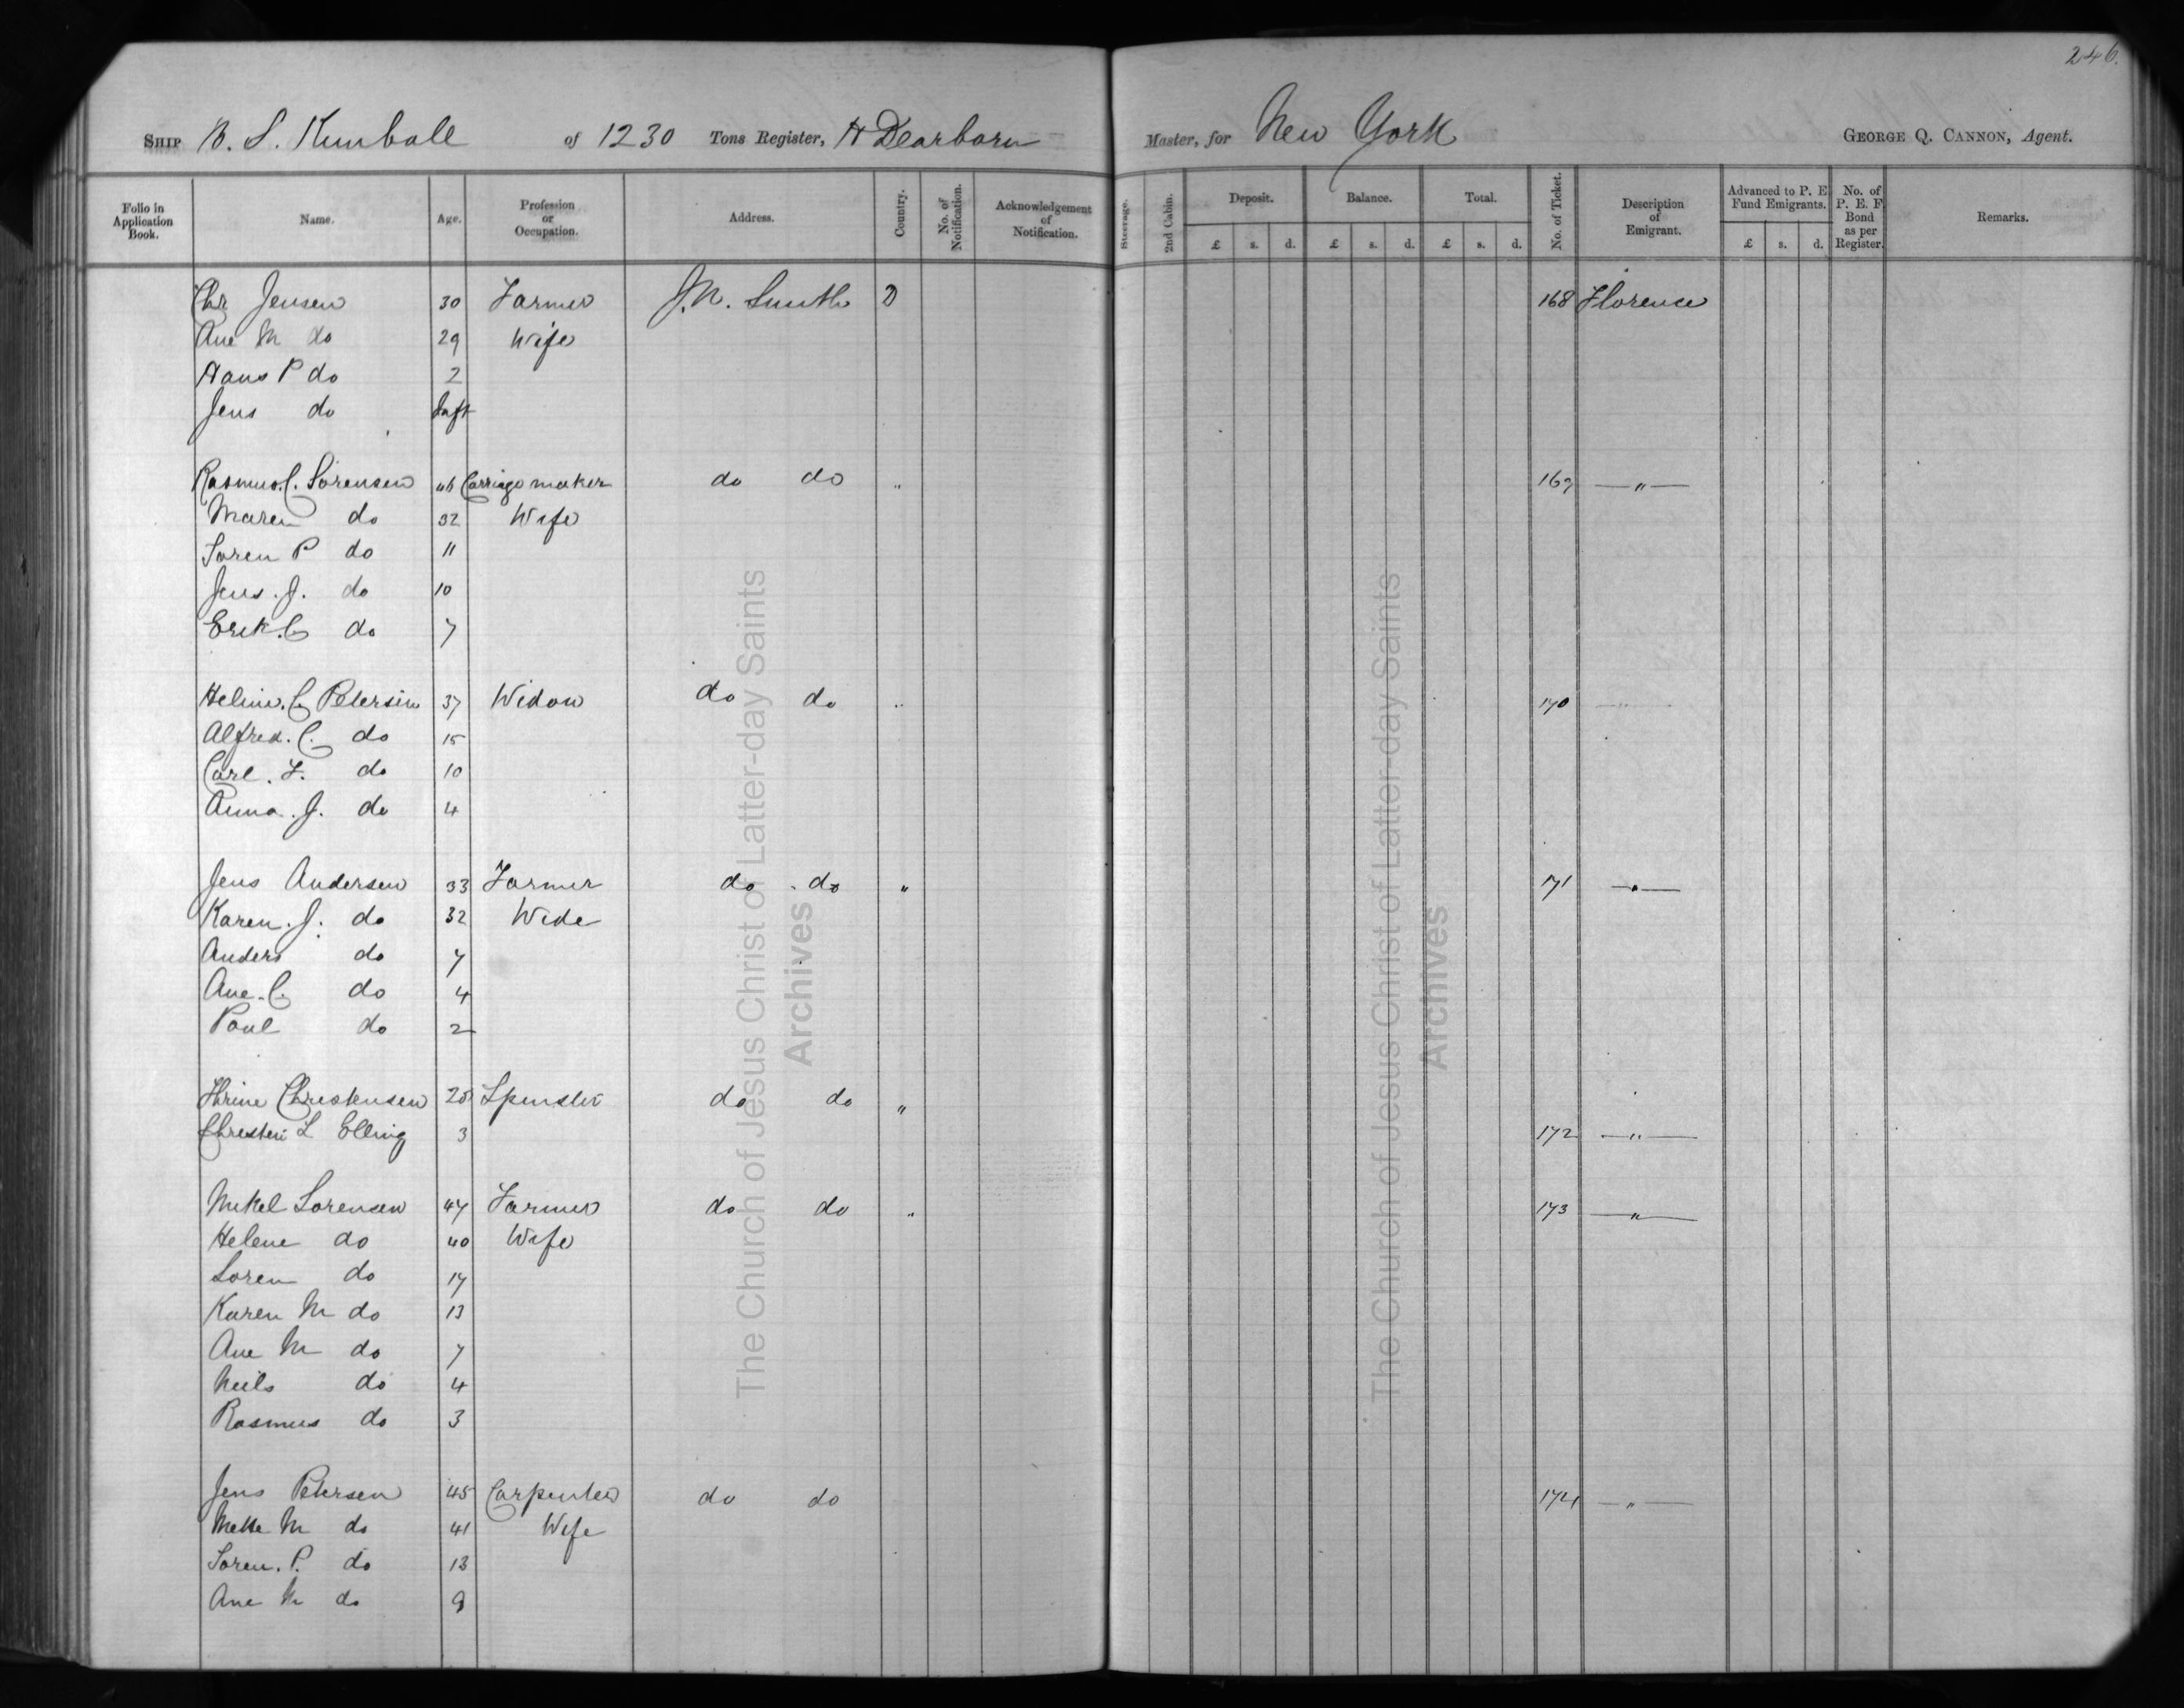 246.
SHIP B. S. Kimball of 1230 Tons Register, H Dearborn Master, for New York GEORGE Q. CANNON, Agent.
Folio in Application Book. Name. Age. Profession or Occupation. Address. Country. No. of Notification. Acknowledgement of Notification. Steerage. 2nd Cabin. Deposit. £ s. d. Balance. £ s. d. Total. £ s. d. No. of Ticket. Description of Emigrant. Advanced to P. E. Fund Emigrants. £ s. d. No. of P. E. F. Bond as per Register. Remarks.
Chr Jensen 30 Farmer J. N. Smith D 168 Florence
Ane M do 29 Wife
Hans P do 2
Jens do Inft
Rasmus C. Sorensen 46 Carriage maker do do " 169 — " —
Maren do 32 Wife
Soren P do 11
Jens. J. do 10
Erik. C do 7
Heline. C Petersen 37 Widow do do " 170 — " —
Alfred. C. do 15
Carl. F. do 10
Anna. J. do 4
Jens Andersen 33 Farmer do do " 171 — " —
Karen. J. do 32 Wide
Anders do 7
Ane. C. do 4
Poul do 2
Thrine Christensen 28 Spinster do do "
Christen L Elling 3 172 — " —
Mikel Sorensen 47 Farmer do do " 173 — " —
Helene do 40 Wife
Soren do 17
Karen M do 13
Ane M do 7
Neils do 4
Rasmus do 3
Jens Petersen 45 Carpenter do do 174 — " —
Mette M do 41 Wife
Soren. P. do 13
Ane M do 9
The Church of Jesus Christ of Latter-day Saints
Archives
The Church of Jesus Christ of Latter-day Saints
Archives